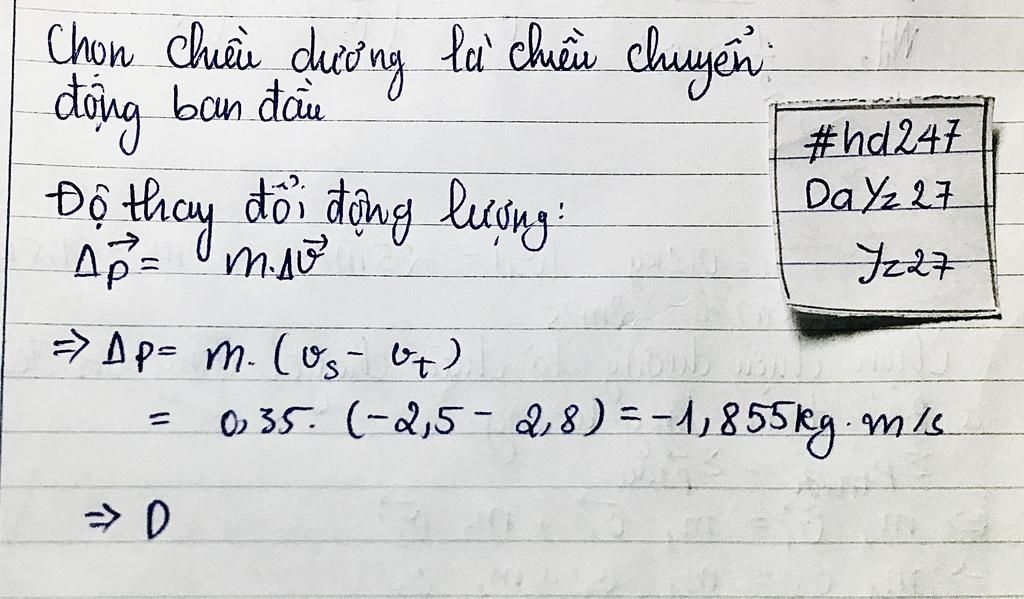 Chọn chiều dương là chiều chuyển
động ban đầu
#hd247
DaYz27
Yz27
Độ thay đổi động lượng:
Δp⃗ = m.Δv⃗
⇒ Δp = m. (vₛ - vₜ)
= 0,35. (-2,5 - 2,8) = -1,855kg.m/s
⇒ D